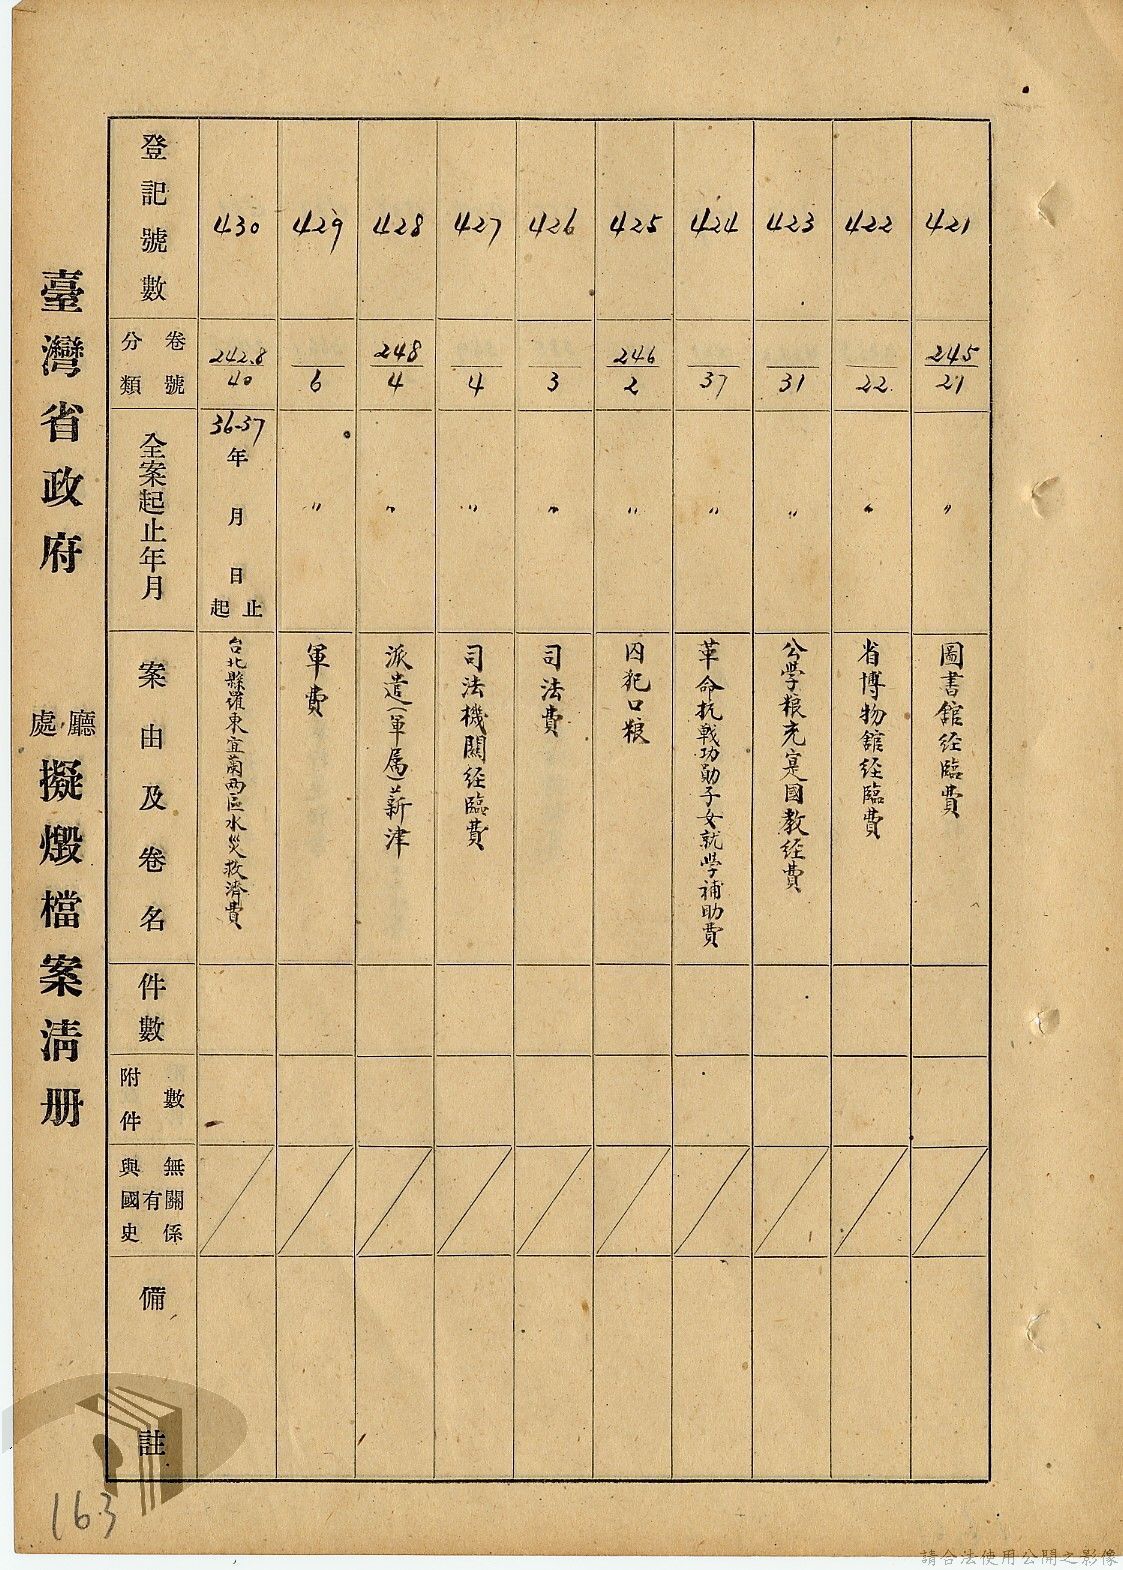 臺灣省政府 處廳 擬燬檔案清册
登記號數
卷號
分類
全案起止年月
案由及卷名
件數
附件數
與國史有無關係
備註
430
242.8/40
36-37年 月 日起止
台北縣羅東宜蘭兩區水災救濟費
429
6
〃
軍費
428
248/4
〃
派遣(軍屬)薪津
427
4
〃
司法機關経臨費
426
3
〃
司法費
425
246/2
〃
囚犯口粮
424
37
〃
革命抗戰功勛子女就学補助費
423
31
〃
公学粮充寔国教経費
422
22
〃
省博物舘経臨費
421
245/21
〃
圖書舘経臨費
163
請合法使用公開之影像